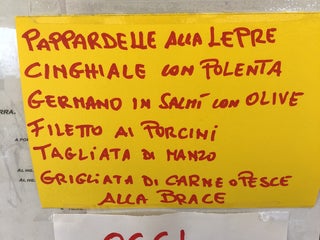 PAPPARDELLE ALLA LEPRE
CINGHIALE CON POLENTA
GERMANO IN SALMÌ CON OLIVE
FILETTO AI PORCINI
TAGLIATA DI MANZO
GRIGLIATA DI CARNE O PESCE
ALLA BRACE
OGGI